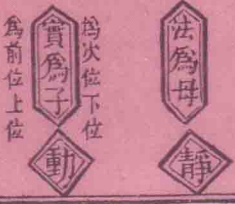 法爲母
靜
爲次位下位
實爲子
動
爲前位上位